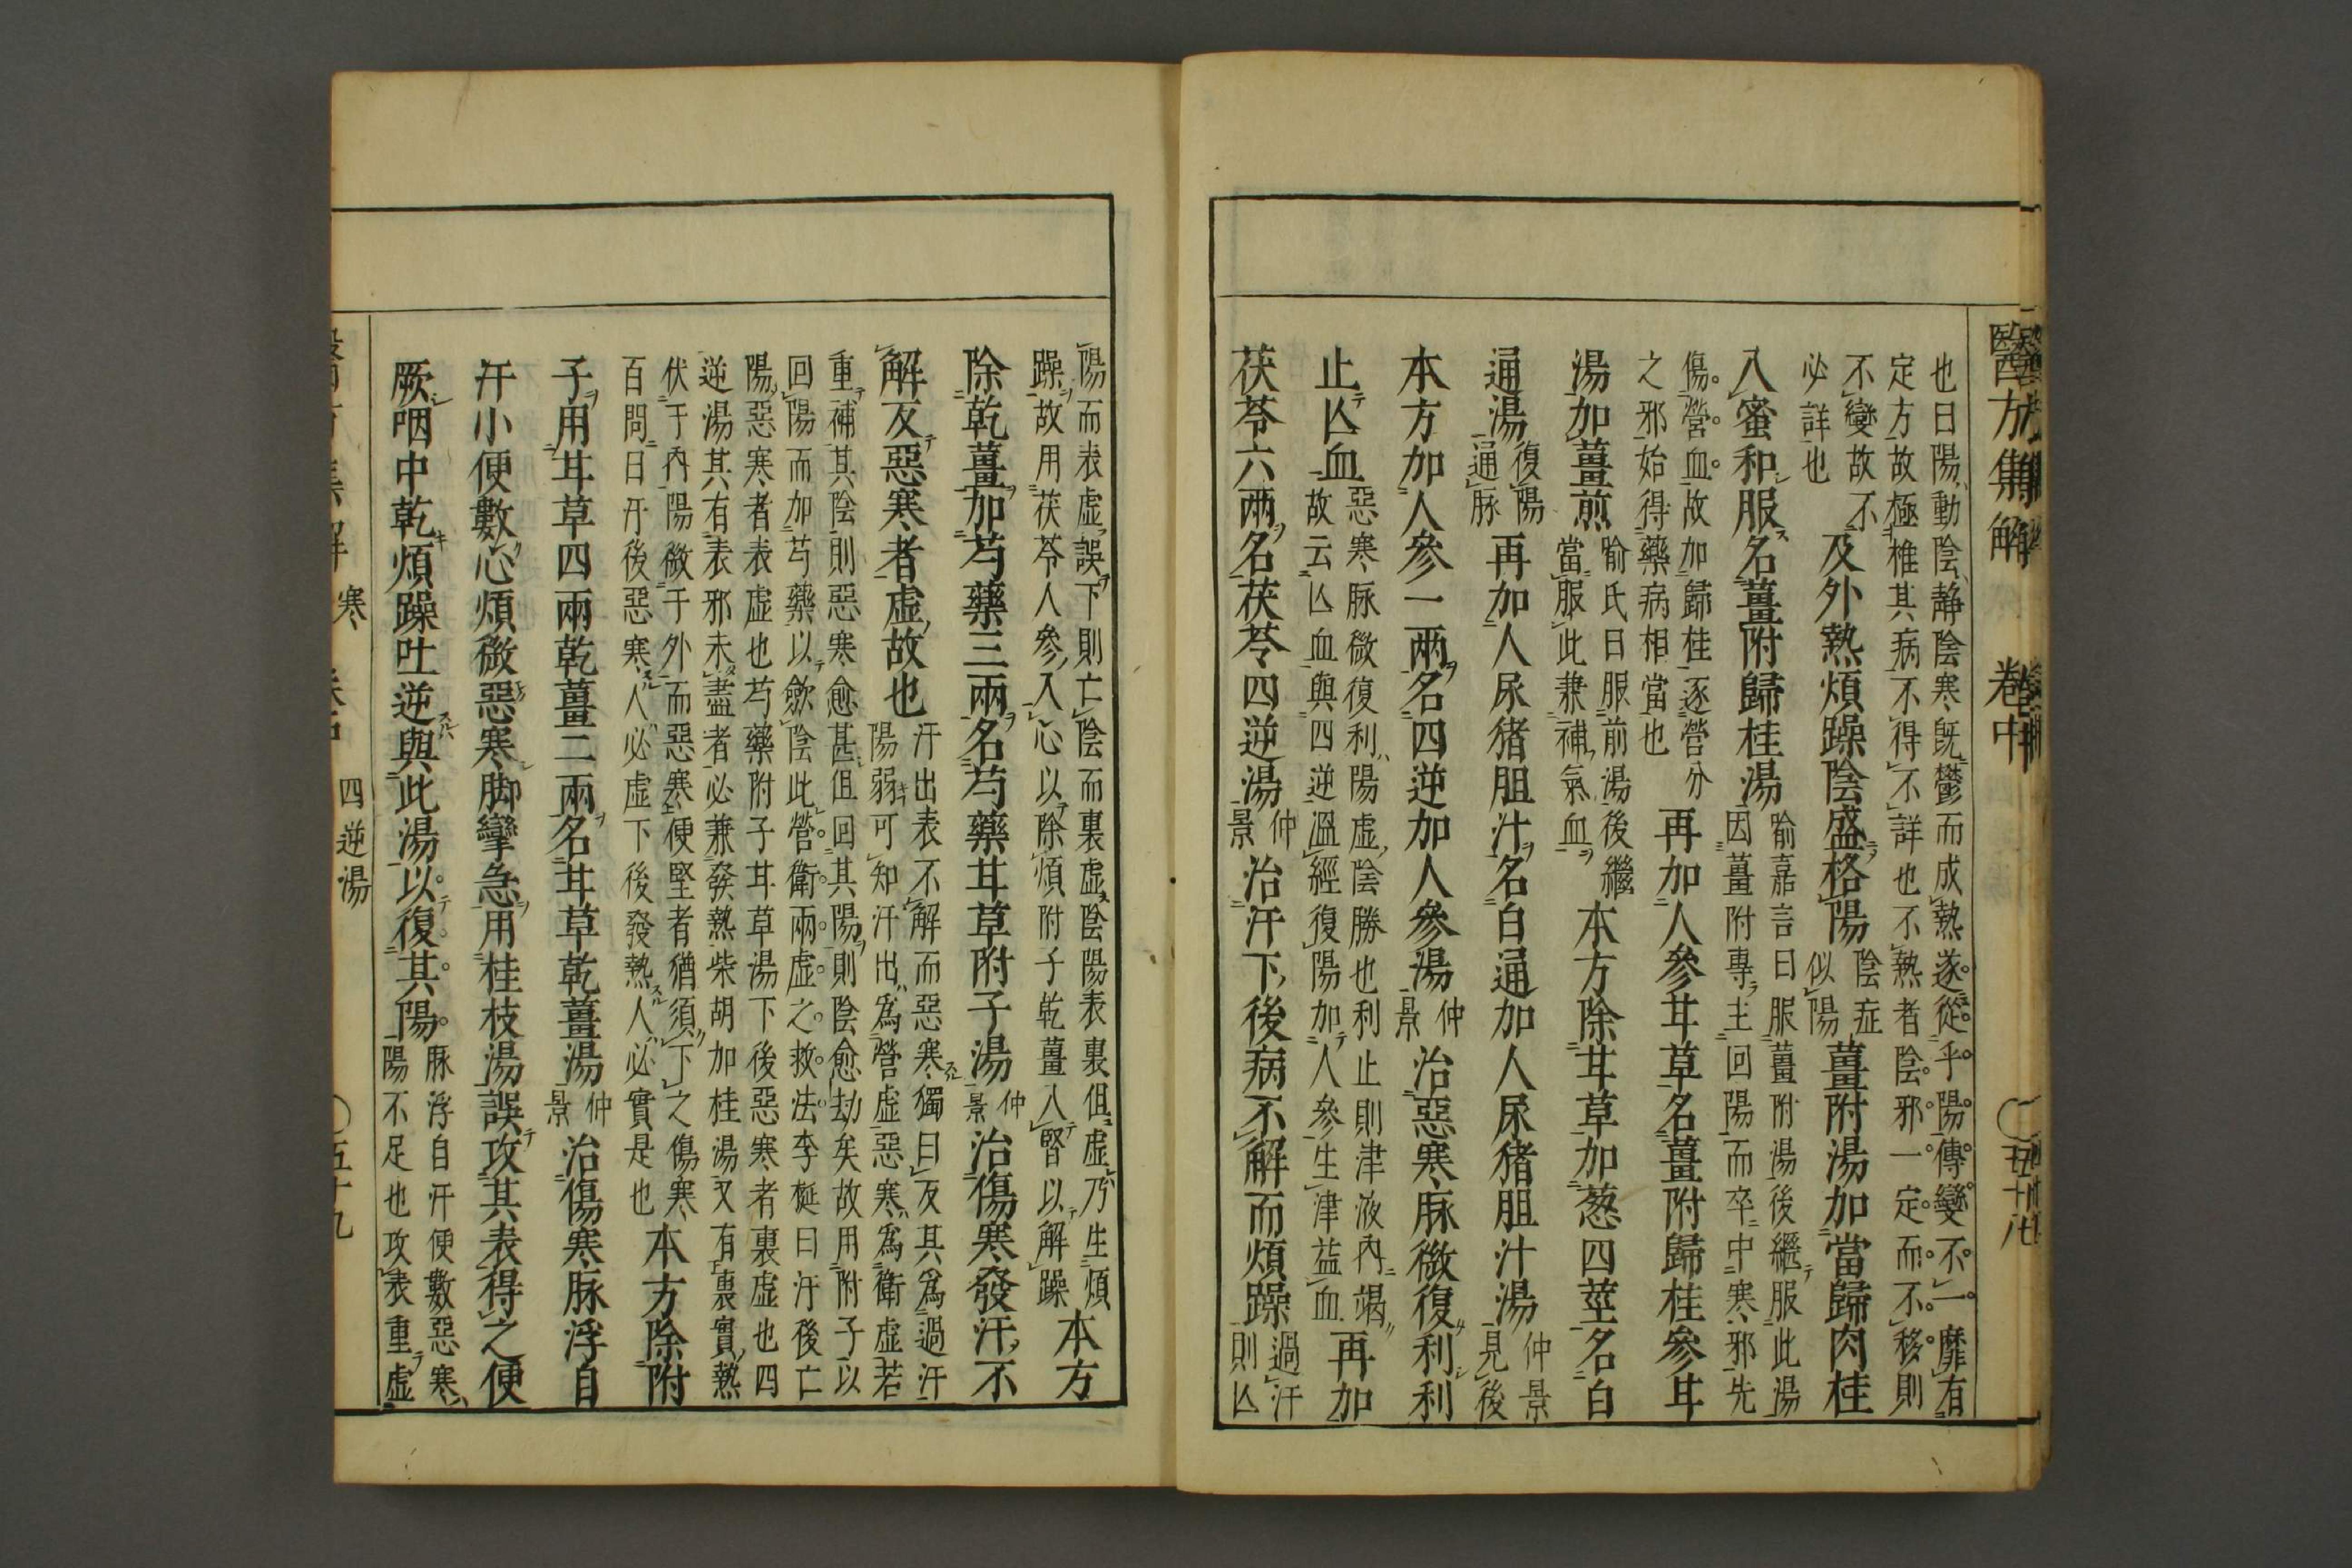 醫方集解 卷中 五十八
也曰陽動陰靜陰寒既鬱而成熱遂從乎陽傳變不一靡有
定方故極椎其病不得不詳也不熱者陰邪一定而不移則
不變故不
必詳也
及外熱煩躁陰盛格陽
陰症
似陽
薑附湯加當歸肉桂
入蜜和服名薑附歸桂湯
喻嘉言曰服薑附湯後繼服此湯
因薑附專主回陽而卒中寒邪先
傷營血故加歸桂逐營分
之邪始得藥病相當也
再加人參甘草名薑附歸桂參甘
湯加薑煎
喻氏曰服前湯後繼
當服此兼補氣血
本方除甘草加葱四莖名白
通湯
復陽
通脉
再加人尿猪胆汁名白通加人尿猪胆汁湯
仲景
見後
本方加人參一兩名四逆加人參湯
仲
景
治惡寒脉微復利利
止亾血
惡寒脉微復利陽虛陰勝也利止則津液內竭
故云亾血與四逆溫經復陽加人參生津益血
再加
茯苓六兩名茯苓四逆湯
仲
景
治汗下後病不解而煩躁
過汗
則亾
陽而表虛誤下則亡陰而裏虛陰陽表裏俱虛乃生煩
躁故用茯苓人參入心以除煩附子乾薑入腎以解躁
本方
除乾薑加芍藥三兩名芍藥甘草附子湯
仲
景
治傷寒發汗不
解反惡寒者虛故也
汗出表不解而惡寒獨曰反其爲過汗
陽弱可知汗出爲營虛惡寒爲衛虛若
重補其陰則惡寒愈甚但回其陽則陰愈劫矣故用附子以
回陽而加芍藥以斂陰此營衛兩虛之救法李梴曰汗後亡
陽惡寒者表虛也芍藥附子甘草湯下後惡寒者裏虛也四
逆湯其有表邪未盡者必兼發熱柴胡加桂湯又有裏實熱
伏于內陽微于外而惡寒便堅者猶須下之傷寒
百問曰汗後惡寒人必虛下後發熱人必實是也
本方除附
子用甘草四兩乾薑二兩名甘草乾薑湯
仲
景
治傷寒脉浮自
汗小便數心煩微惡寒脚攣急用桂枝湯誤攻其表得之便
厥咽中乾煩躁吐逆與此湯以復其陽
脉浮自汗便數惡寒
陽不足也攻表重虛
寒 四逆湯 五十九